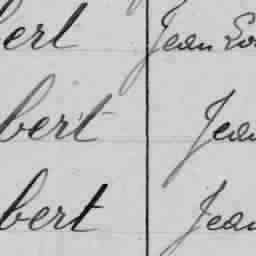 bert Jean Lou
bert Jean
bert Jean